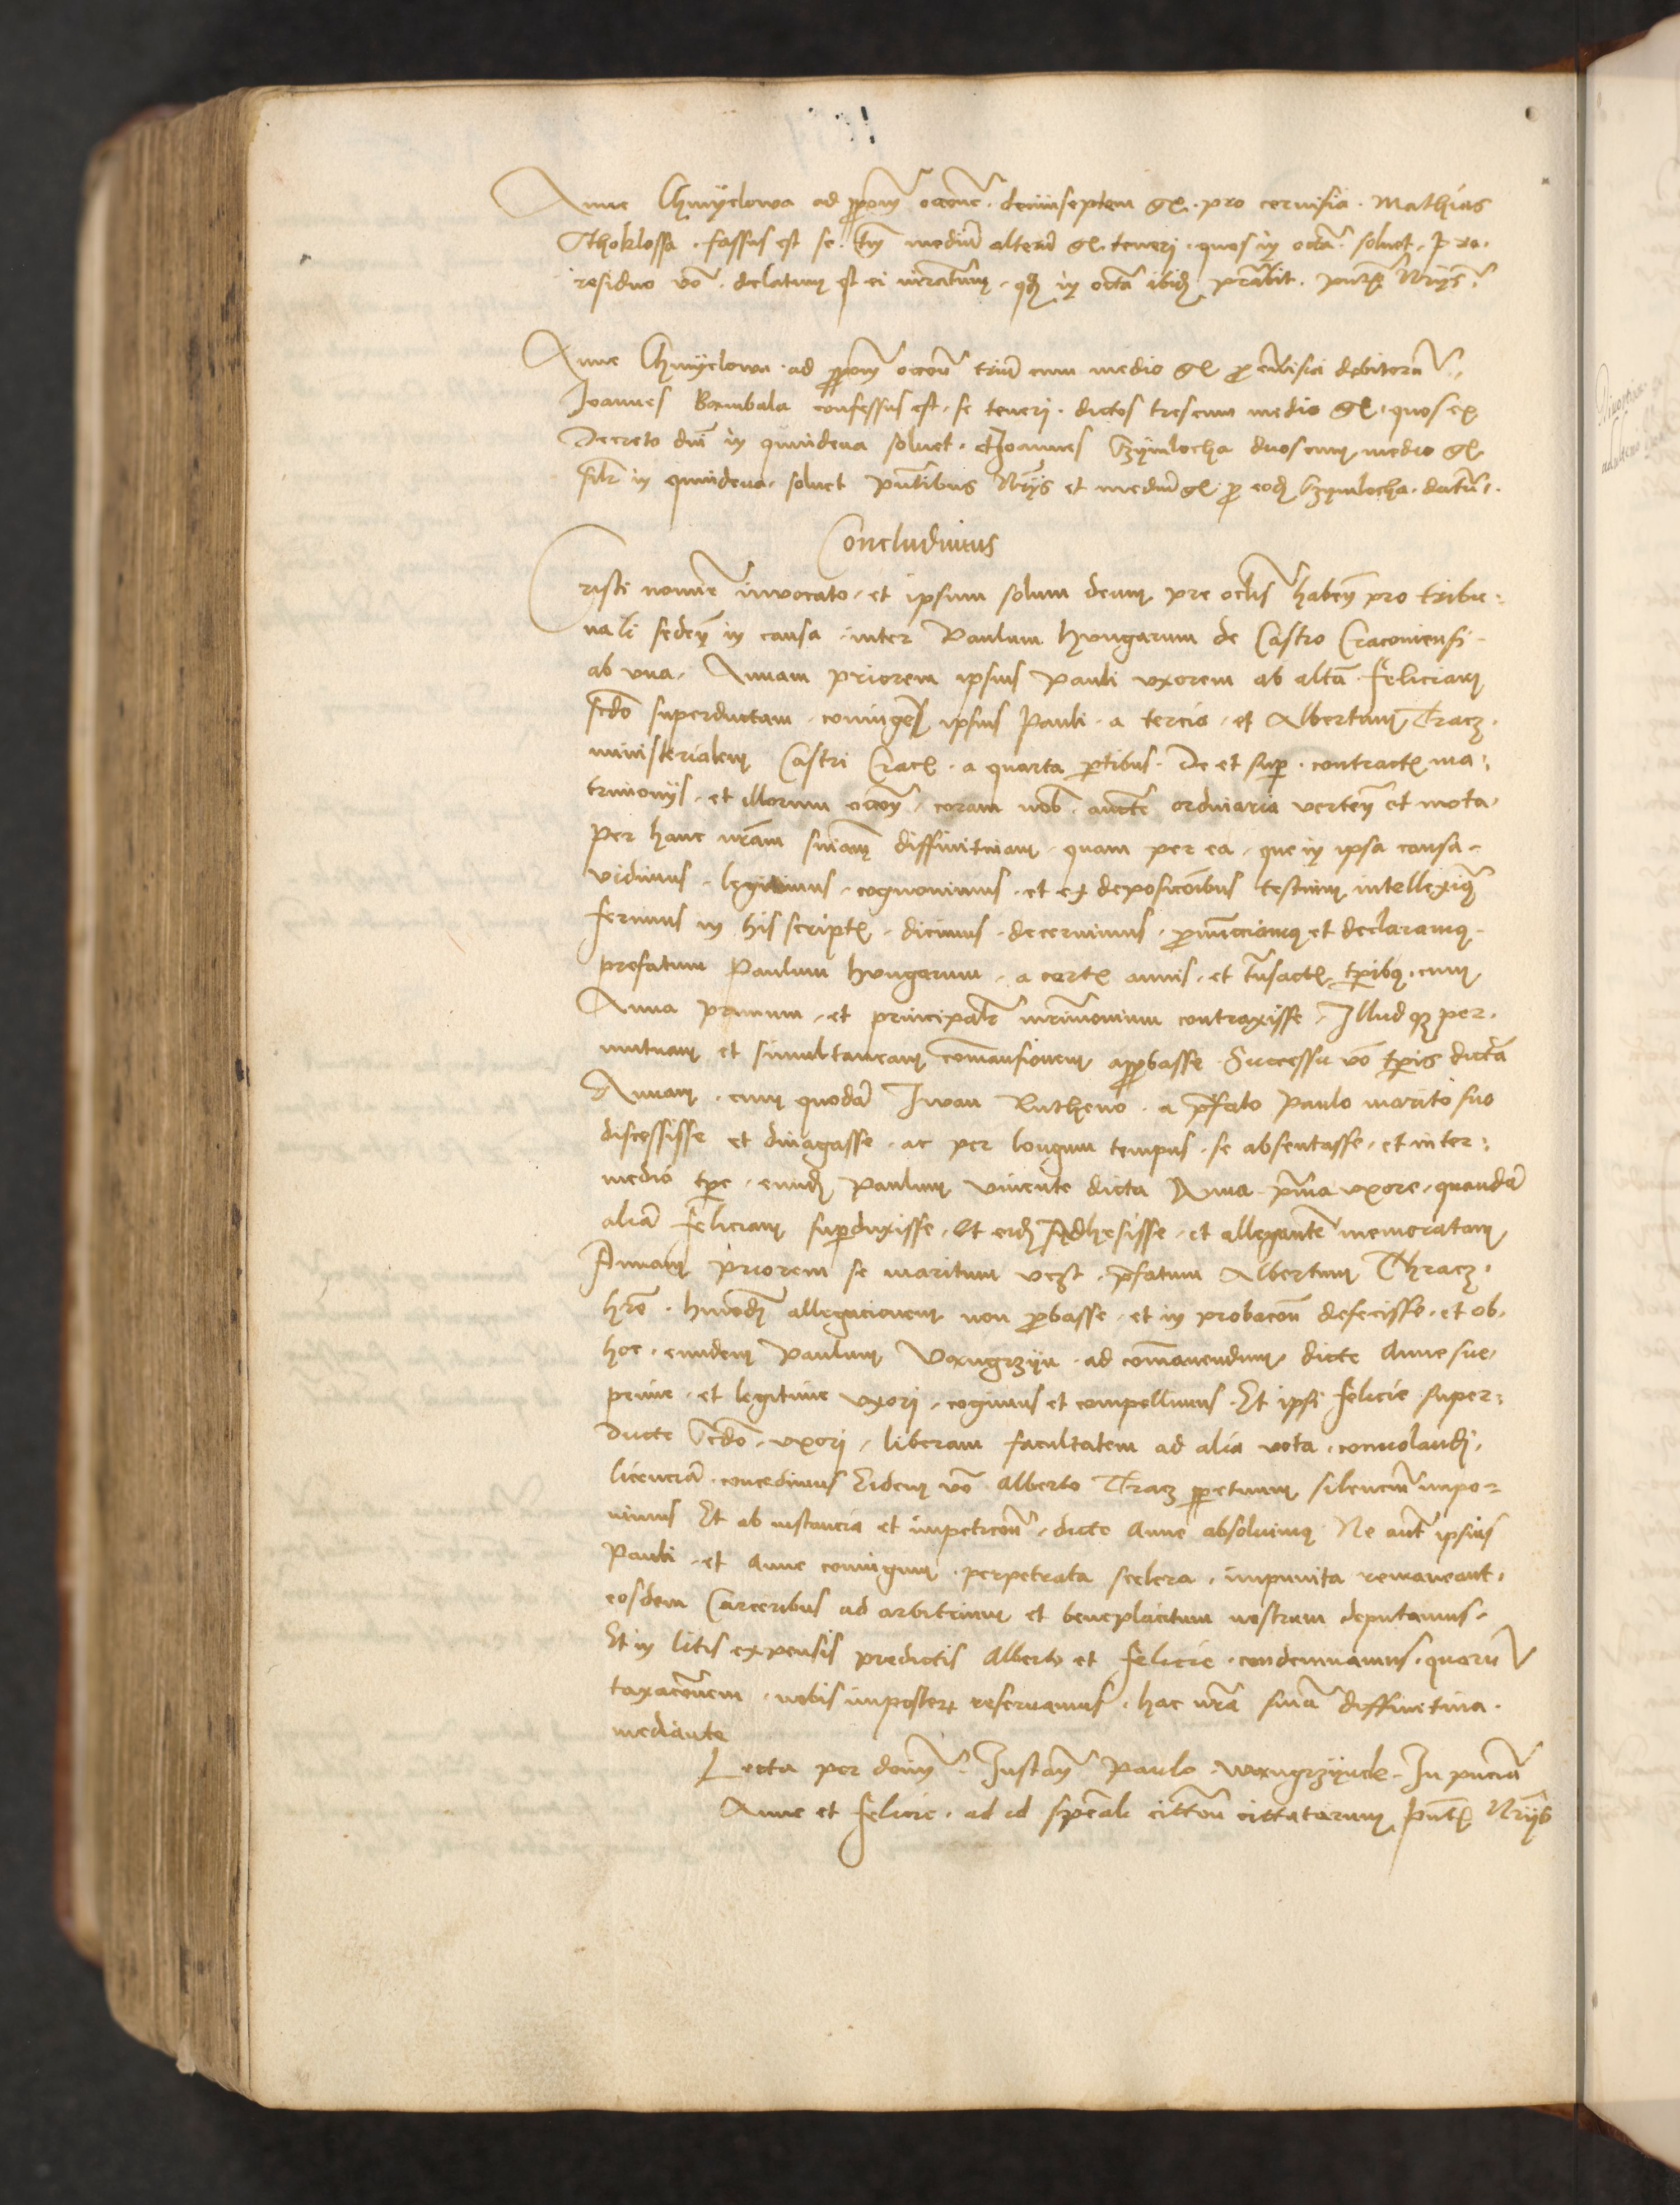 Anne Chmyelowa ad ppom̃ occone decimseptem gl. pro ceruisia. Mathias
Sthoklossa. fassus est se. tm̃ mediũ alterũ gl. teneri. quos in octa. soluet. Pro.
residuo vo. delatum est ei iuratum. qd in octa ibid prestabit. pntibus Nrijs
Anne Chmyelowa. ad ppom̃ occon triũ cum medio gl p ceruisia debitorũ
Joannes Bambala confessus est. se teneri. dictos tres cum medio gl. quos ex
Decreto dni in quindena soluet. Et Joannes duos cum medio gl
silr in quindena. soluet pntibus Nrijs et mediũ gl. p eod datũ.
Concludimus
Cristi nomine invocato. et ipsum solum deum pre oclis haben pro tribu:
nali seden in causa inter Paulum hungarum de Castro Cracouiensi
ab vna. Annam priorem ipsius Pauli vxorem ab altã. feliciam
scdo superductam. coniugem ipsius Pauli. a tercia. et Albertum Tracz.
ministerialem Castri Crac. a quarta ptibus. De et sup. contractis ma:
trimonijs. et illorum occon. coram nob. aucte ordinaria verten et mota.
per hanc nram sniam diffinitiuam. quam per ea. que in ipsa causa.
vidimus. legimus. cognouimus. et ex deposicoibus testium intelleximus
ferimus in his scriptis. dicimus. decernimus. pnuncciamus et declaramus.
prefatum Paulum hungarum. a certis annis. et trãsactis tpibus. cum
Anna primum. et principalr mrimonium contraxisse. Illudque per.
mutuam et simultaneam comansionem approbasse. Successu vo tpis dictã
Annam. cum quodã Iwan Rutheno. a pfato Paulo marito suo
discessisse et diuagasse. ac per longum tempus. se absentasse. et inter:
medio tpe. eund Paulum viuente dicta Anna prima vxore. quandã
aliã feliciam superduxisse. Et eid Adhesisse. et allegante memoratam
Annam priorem se maritum vcz. pfatum Albertum Thracz.
hre. hmoid allegacionem non pbasse. et in probacon defecisse. et ob.
hoc. eundem Paulum Vangrzyn. ad comanendum. dicte Anne sue.
prime. et legitime vxori. cogimus et compellimus. Et ipsi felicie super:
ducte scdo. vxori. liberam facultatem ad alia vota. conuolandi.
licenciã. concedimus Eidem vo Alberto Tracz ppetuum silenciũ impo-
nimus Et ab instancia et impeticon. dicte Anne absoluimus. Ne aut ipsius
Pauli. et Anne coniugum. perpetrata scelera. impunita remaneant.
eosdem Carceribus ad arbitrium et beneplacitum nostrum deputamus.
Et in litis expensis predictis Alberto et felicie. condemnamus. quorũ
taxaconem. nobis imposter reseruamus. hac nrã sniã diffinitiua.
mediante
Lecta per dom. Instan Paulo. Wangrzynek. In pnciã
Anne et felicie. ad id speciali cittacon cittatarum. pnt Nrijs